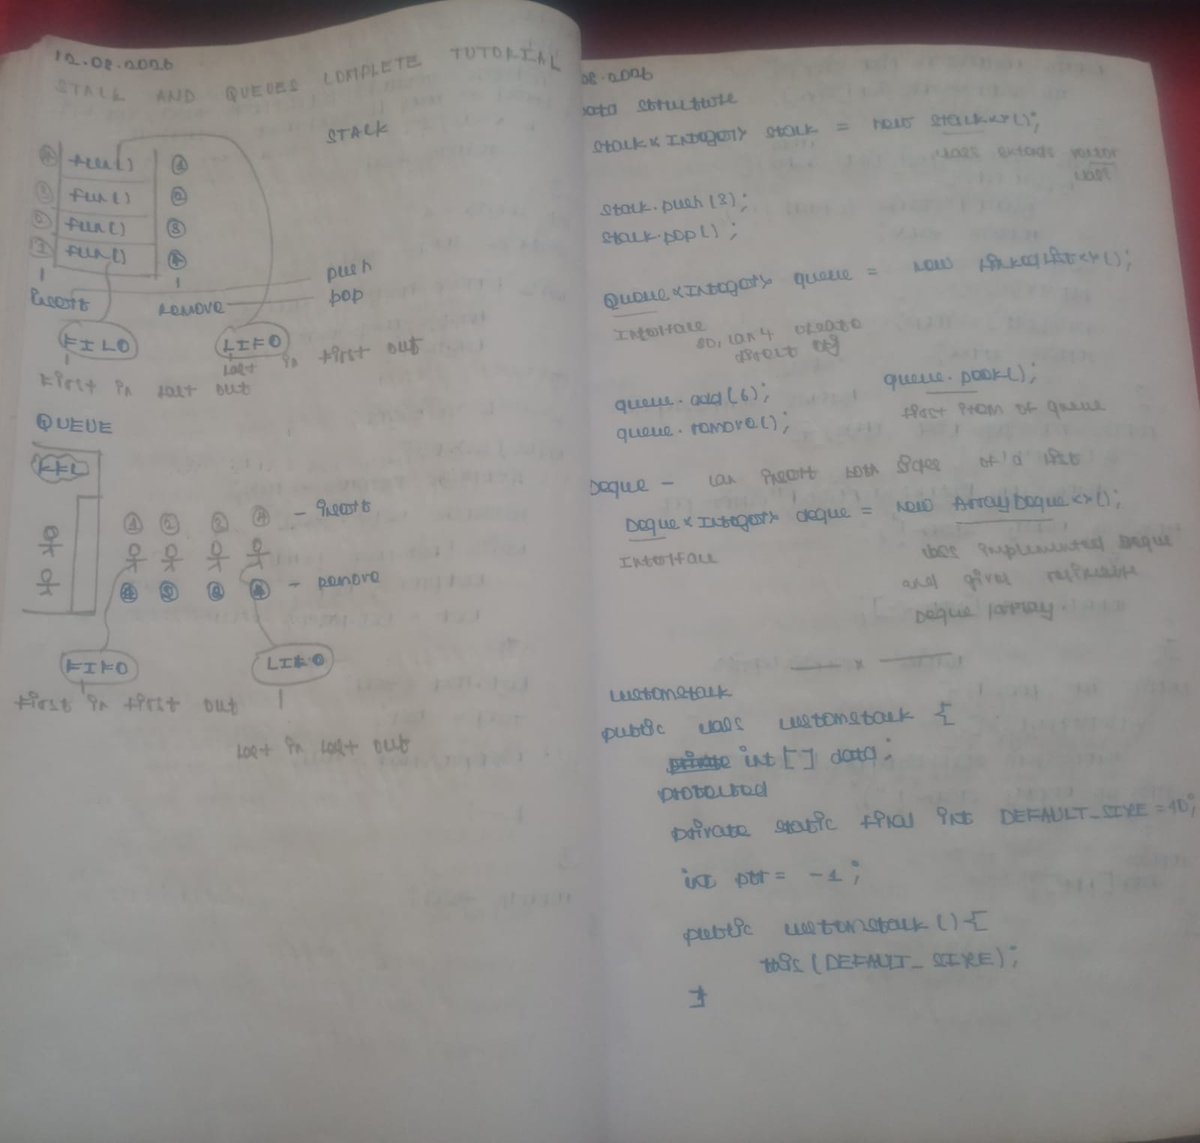 12.08.2026
STACK AND QUEUES COMPLETE TUTORIAL
STACK
4 fun() 1
3 fun() 2
2 fun() 3
1 fun() 4
Insert
remove
push
pop
FILO
LIFO
First in last out
last in first out
QUEUE
KFC
1 2 3 4 - insert
4 3 2 1 - remove
FIFO
LILO
first in first out
last in last out
08.2026
Data structure
Stack<Integer> stack = new Stack<>();
class extends vector
class
stack.push(8);
stack.pop();
Queue<Integer> queue = new LinkedList<>();
Interface
so, can't create
direct obj
queue.add(6);
queue.peek();
queue.remove();
first item of queue
Deque - can insert both sides of a list
Deque<Integer> deque = new ArrayDeque<>();
Interface
class implemented Deque
and gives resizable
Deque array.
x
customstack
public class customstack {
private int[] data;
protected
private static final int DEFAULT_SIZE = 10;
int ptr = -1;
public customstack() {
this(DEFAULT_SIZE);
}